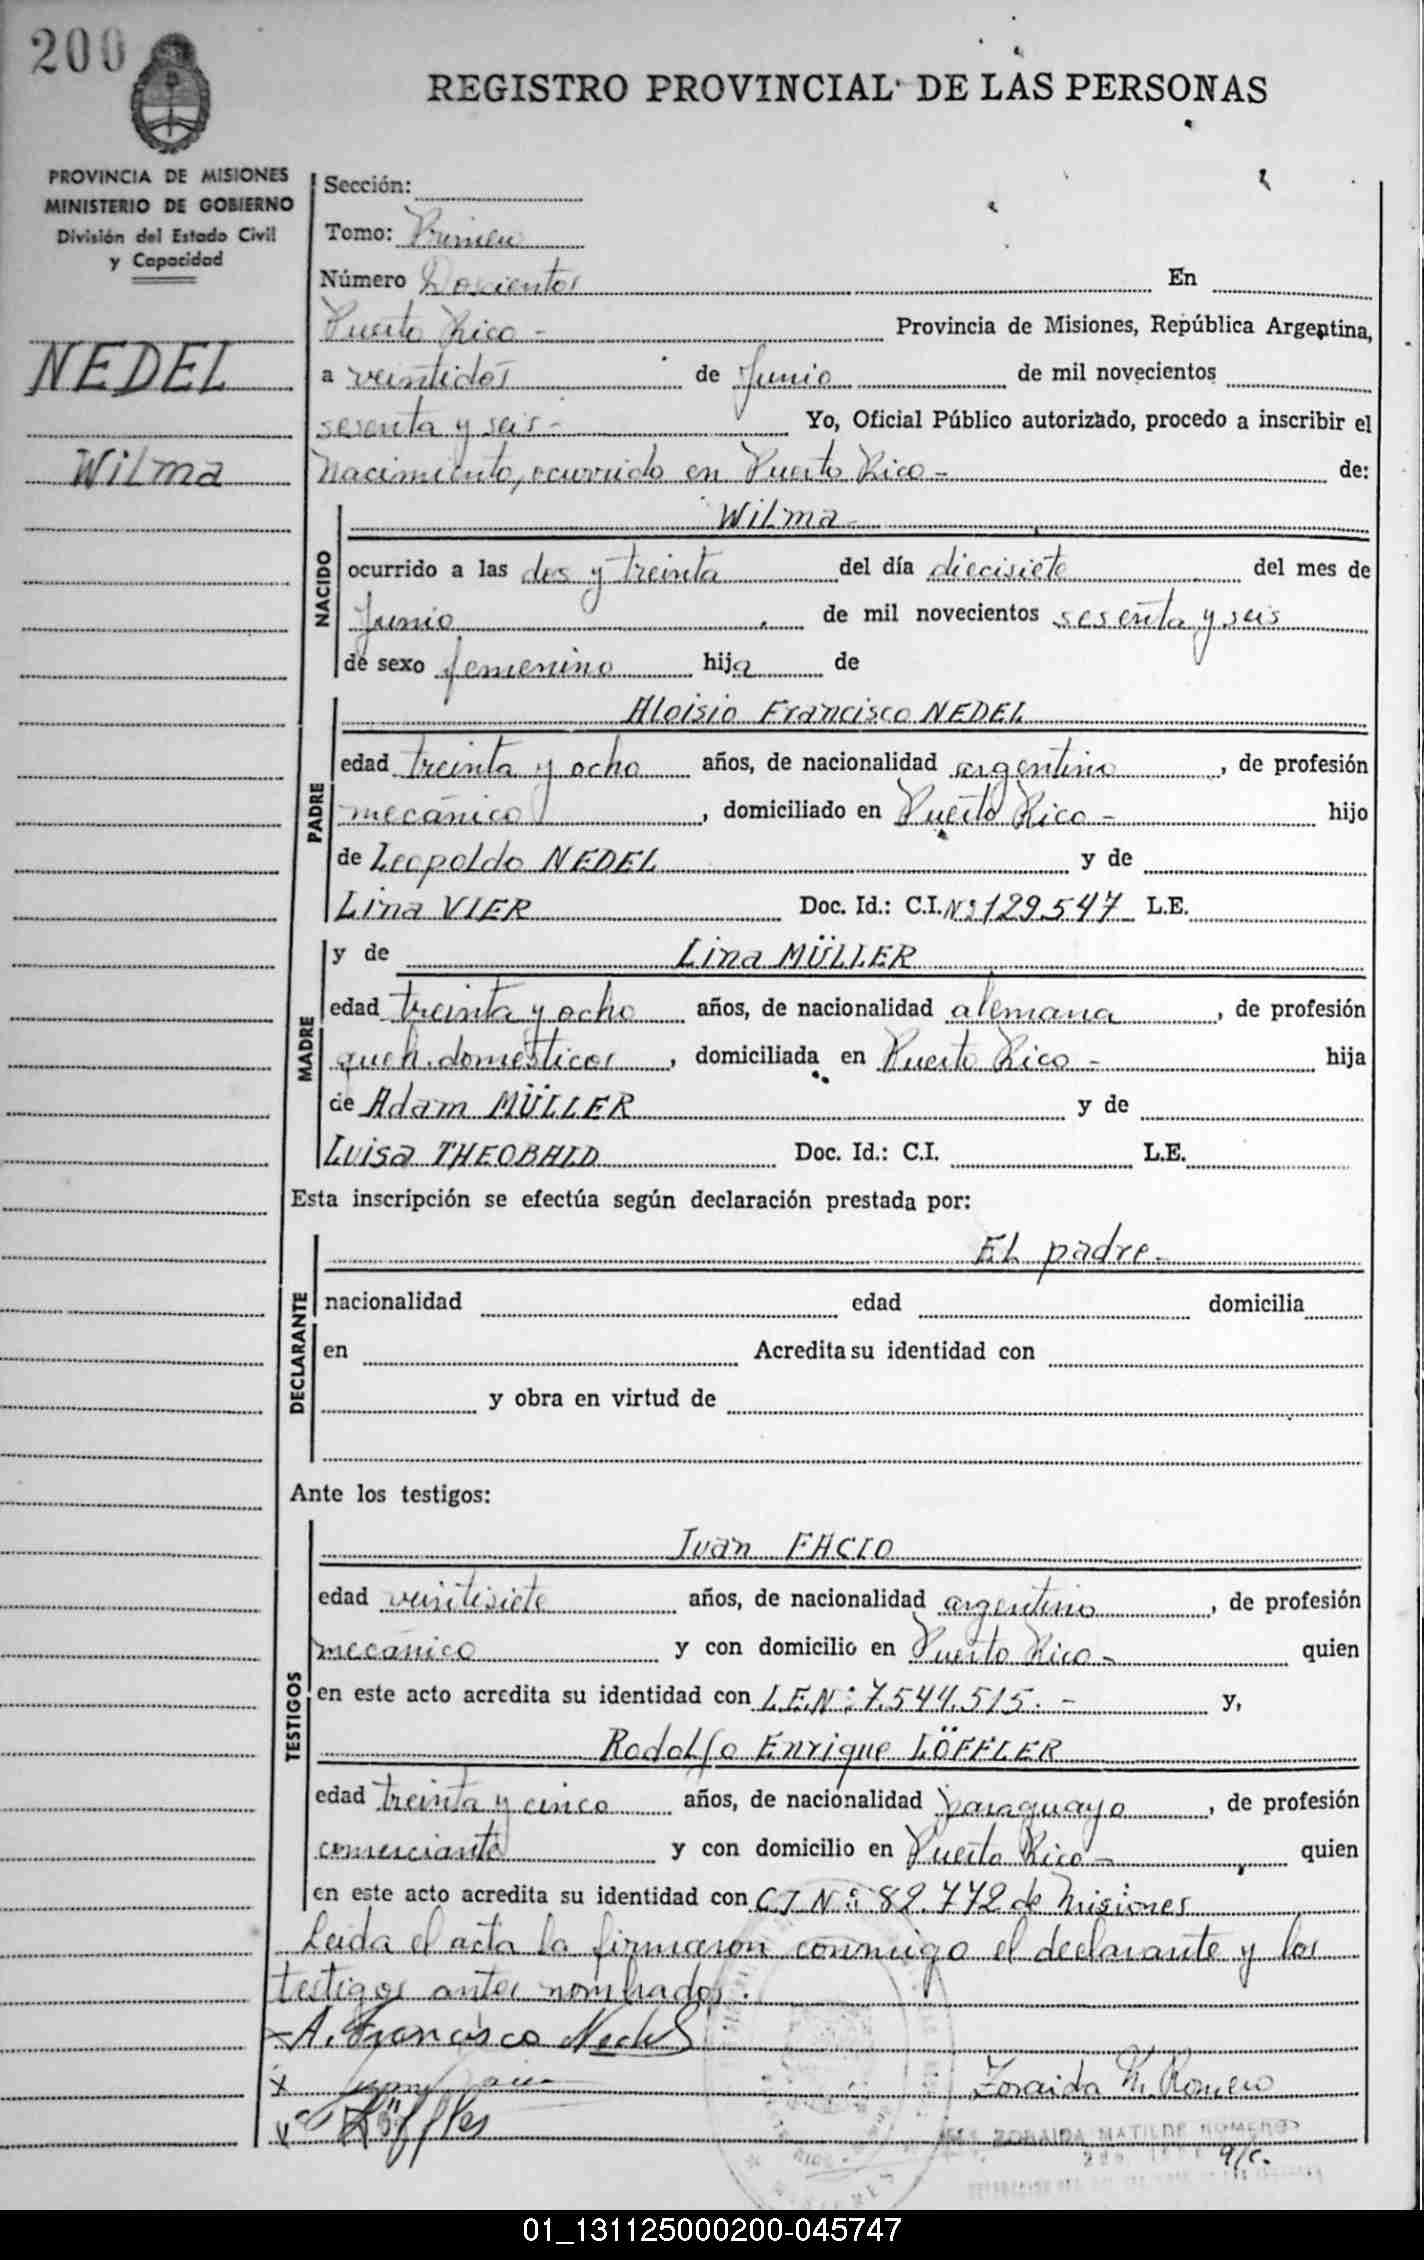 200
REGISTRO PROVINCIAL DE LAS PERSONAS
PROVINCIA DE MISIONES
MINISTERIO DE GOBIERNO
División del Estado Civil
y Capacidad
NEDEL
Wilma
Sección:
Tomo: Primero
Número Doscientos En
Puerto Rico - Provincia de Misiones, República Argentina,
a veintidós de Junio de mil novecientos
sesenta y seis - Yo, Oficial Público autorizado, procedo a inscribir el
Nacimiento, ocurrido en Puerto Rico - de:
NACIDO
Wilma -
ocurrido a las dos y treinta del día diecisiete del mes de
Junio de mil novecientos sesenta y seis
de sexo femenino hija de
PADRE
Aloisio Francisco NEDEL
edad treinta y ocho años, de nacionalidad argentino, de profesión
mecánico, domiciliado en Puerto Rico - hijo
de Leopoldo NEDEL y de
Lina VIER Doc. Id.: C.I. Nº 129.547 L.E.
MADRE
y de Lina MÜLLER
edad treinta y ocho años, de nacionalidad alemana, de profesión
queh. domésticos, domiciliada en Puerto Rico - hija
de Adam MÜLLER y de
Luisa THEOBALD Doc. Id.: C.I. L.E.
Esta inscripción se efectúa según declaración prestada por:
DECLARANTE
EL padre -
nacionalidad edad domicilia
en Acredita su identidad con
y obra en virtud de
Ante los testigos:
TESTIGOS
Juan FACIO
edad veintisiete años, de nacionalidad argentino, de profesión
mecánico y con domicilio en Puerto Rico - quien
en este acto acredita su identidad con L.E.Nº: 7.544.515. - y,
Rodolfo Enrique LÖFFLER
edad treinta y cinco años, de nacionalidad paraguayo, de profesión
comerciante y con domicilio en Puerto Rico - quien
en este acto acredita su identidad con C I Nº: 82.772 de Misiones
Leída el acta la firmaron conmigo el declarante y los
testigos antes nombrados.
A. Francisco Nedel
x Juan Facio
Zoraida M. Romero
Löffler
ZORAIDA MATILDE ROMERO
a/c.
01_131125000200-045747